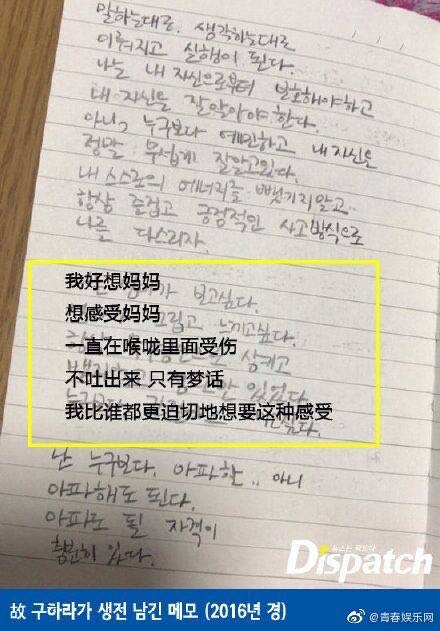 말하는대로. 생각하는대로
이뤄지고 실행이 된다.
나는 내 자신으로부터 보호해야하고
내 자신을 잘알아야한다.
아니, 누구보다 예민하고 내 자신을
정말 무섭게 잘알고있다.
내 스스로의 에너지를 뺏기지말고
항상 즐겁고 긍정적인 사고방식으로
나를 다스리자.
我好想妈妈
보고싶다.
想感受妈妈
느끼고싶다.
一直在喉咙里面受伤
삼키고
不吐出来 只有梦话
있었다.
我比谁都更迫切地想要这种感受
난 누구보다. 아파할.. 아니
아파해도 된다.
아파도 될 자격이
충분히 있다.
뉴스는 팩트다
Dispatch
故 구하라가 생전 남긴 메모 (2016년 경)
@青春娱乐网